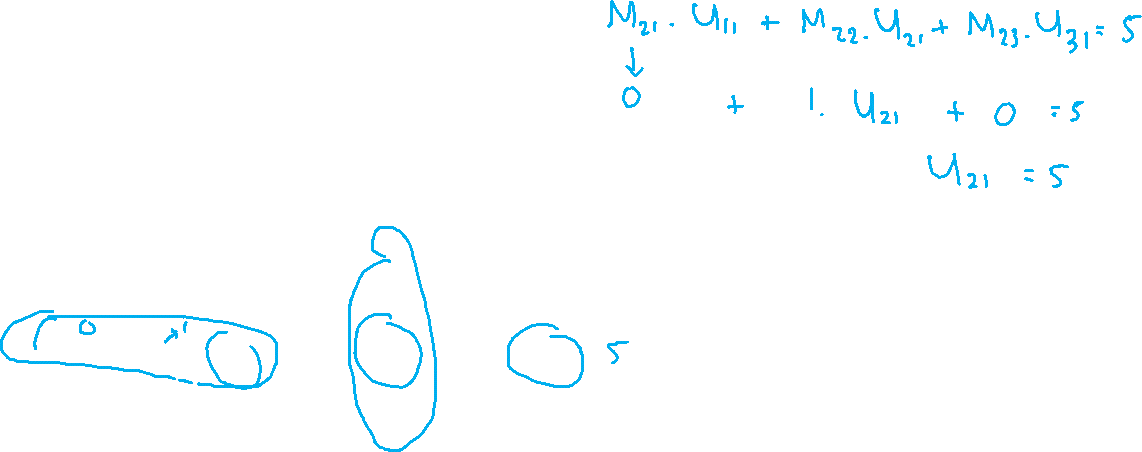 M₂₁ . U₁₁ + M₂₂ . U₂₁ + M₂₃ . U₃₁ = 5
↓
0 + 1 . U₂₁ + 0 = 5
U₂₁ = 5
0 1 5